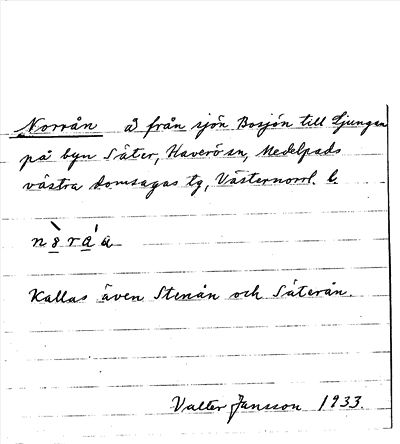 Norrån å från sjön Bosjön till Ljungan
på byn Säter, Haverö sn, Medelpads
västra domsagas tg, Västernorrl. l.
Kallas även Stenån och Säterån.
Valter Jansson 1933.